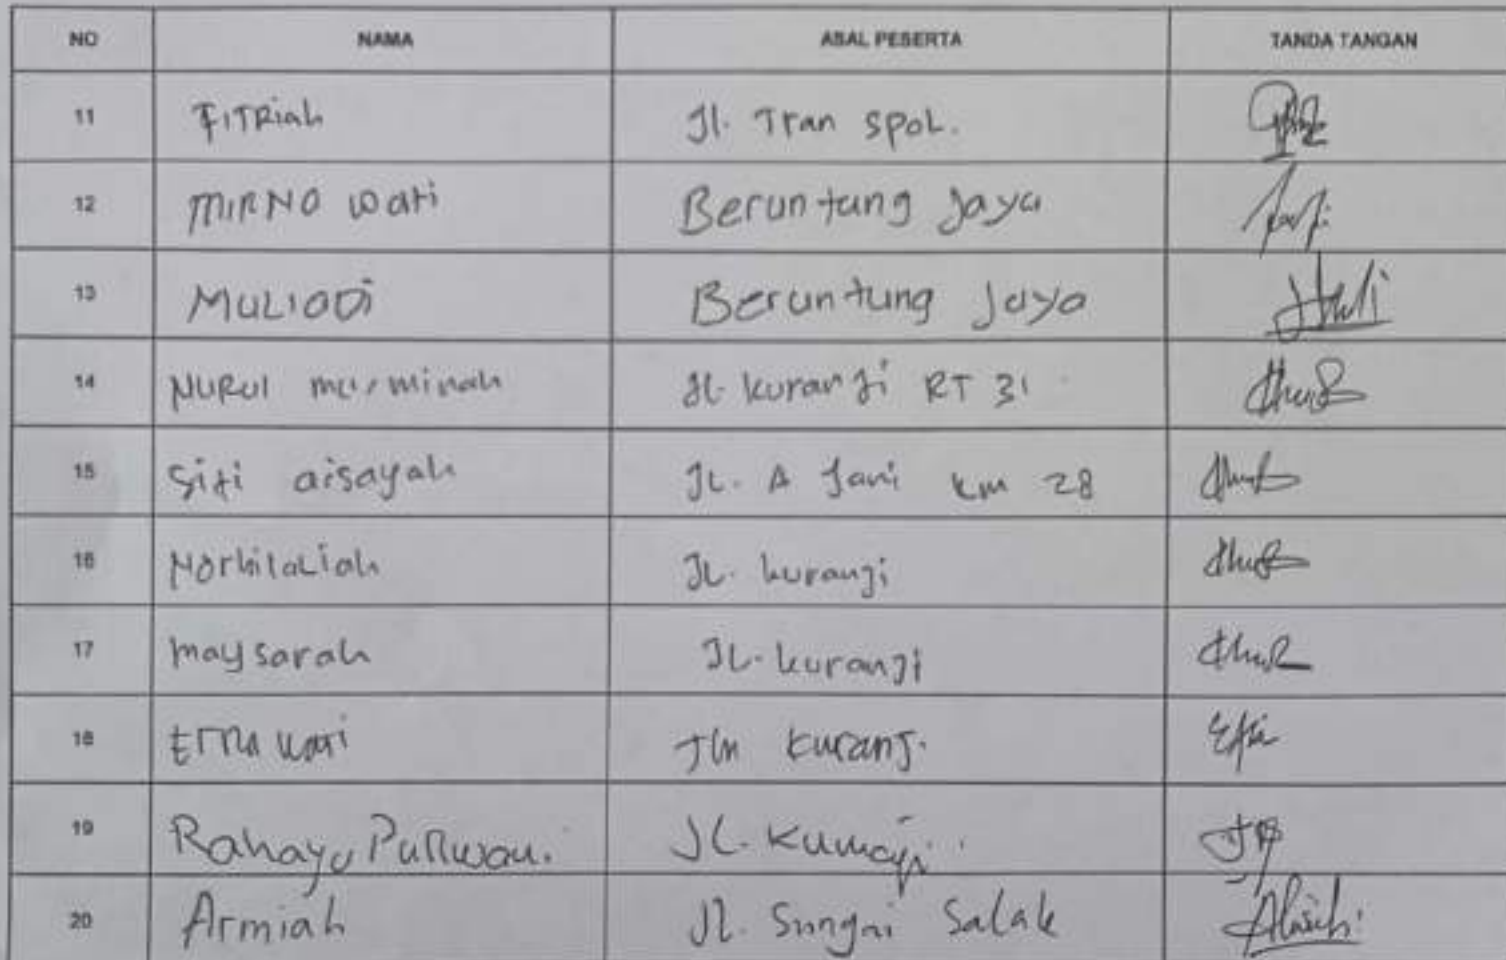 NO NAMA ASAL PESERTA TANDA TANGAN
11 FITRiah Jl. Tran spot.
12 MIRNO wati Beruntung Jaya
13 MULIODi Beruntung Jaya
14 NURUl murminah Jl. kuranji RT 31
15 Siti aisayah JL. A Jani km 28
16 Norhilaliah JL. kuranji
17 maysarah JL. kuranji
18 Erna wati Jln kuranj.
19 Rahayu JL.
20 Armiah Jl. Sungai Salak